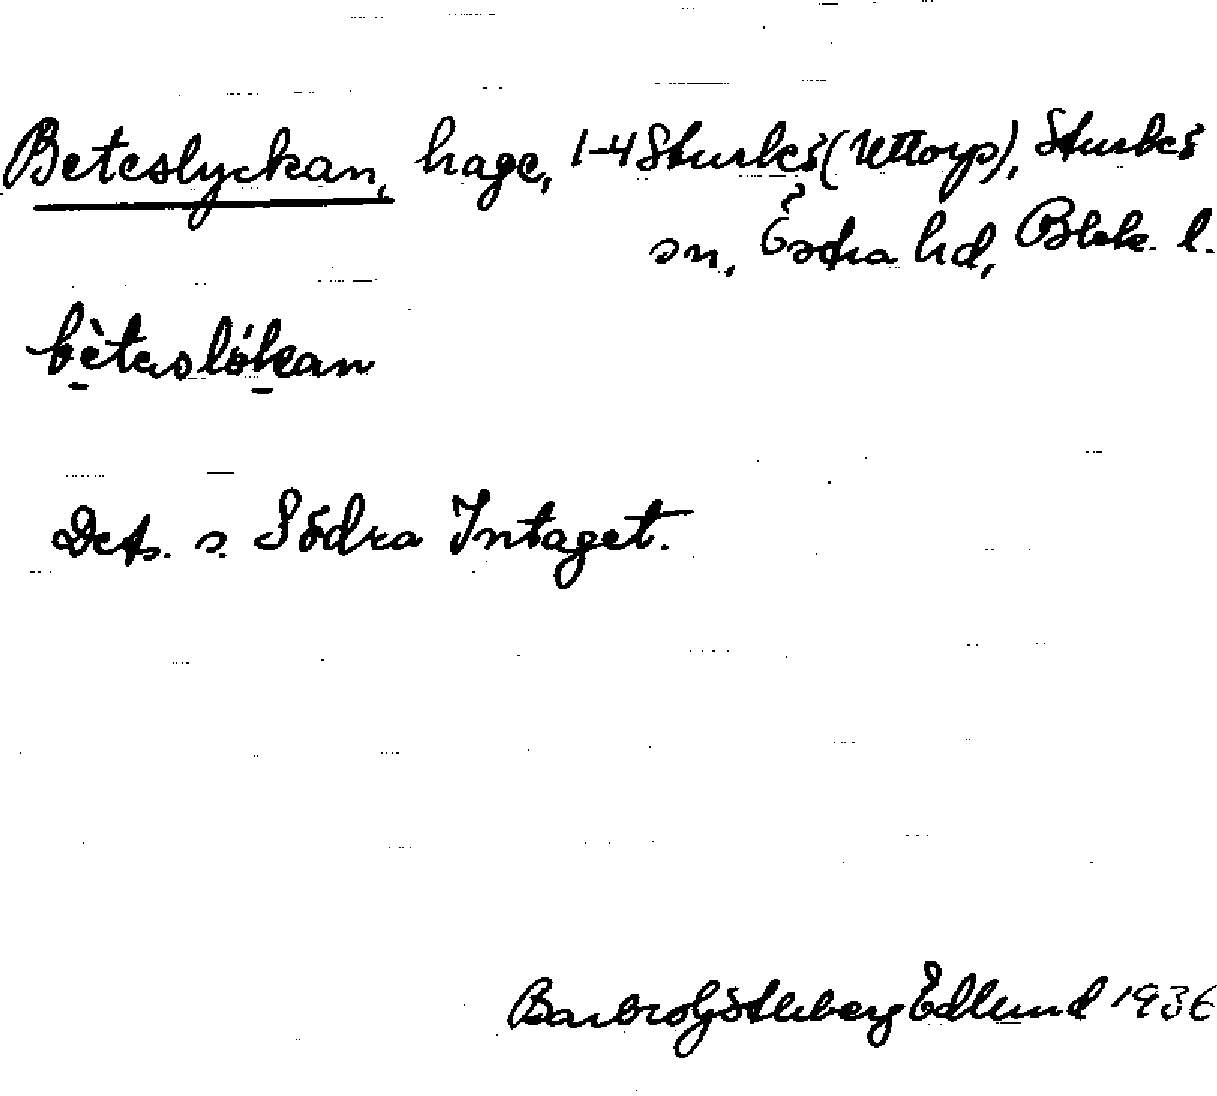 Beteslyckan, hage, 1-4 Sturkö (Uttorp), Sturkö
sn, Östra hd, Blek. l.
bètaslökan
Dets. s. Södra Intaget.
Barbro Götleberg Edlund 1936